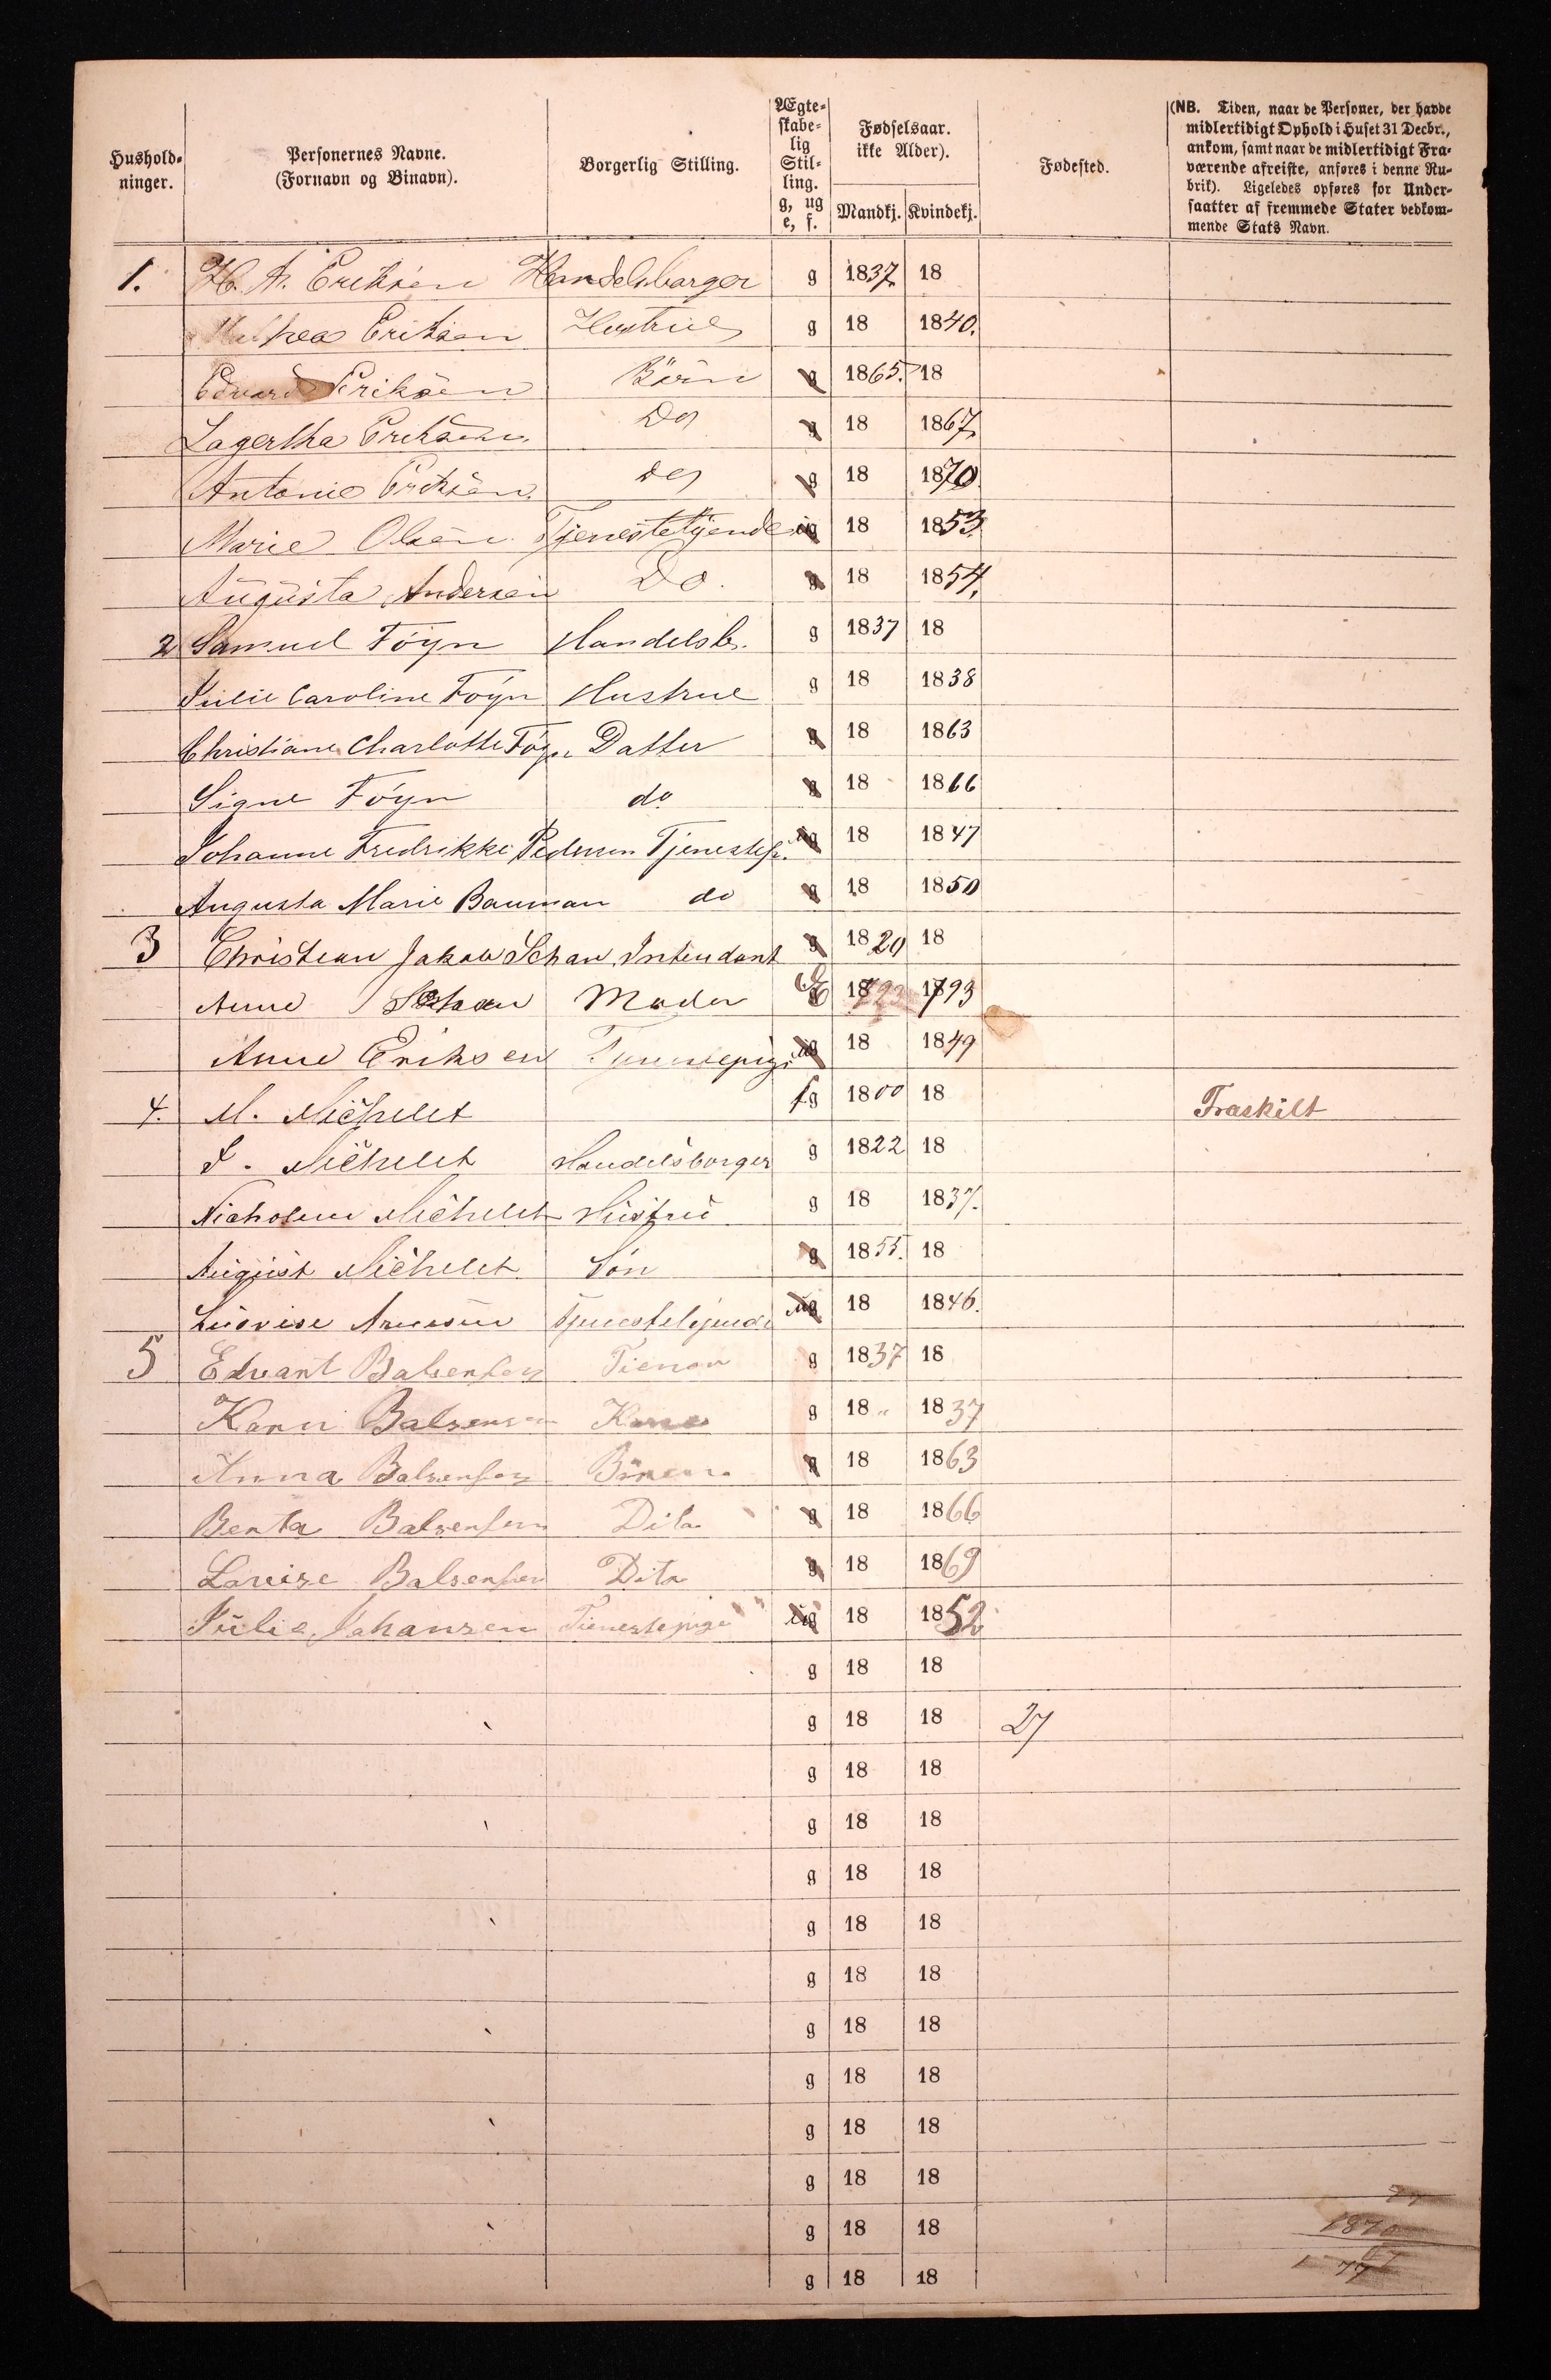 Hushold-ninger. Personernes Navne. (Fornavn og Binavn). Borgerlig Stilling. Ægte-skabe-lig Stil-ling. g, ug e, f. Fødselsaar. ikke Alder). Mandkj. Kvindekj. Fødested.
(NB. Tiden, naar de Personer, der havde
midlertidigt Ophold i Huset 31 Decbr.,
ankom, samt naar de midlertidigt Fra-
værende afreiste, anføres i denne Ru-
brik). Ligeledes opføres for Under-
saatter af fremmede Stater vedkom-
mende Stats Navn.
1. H. A. Eriksen Handelsborger g 1837 18
Eriksen Hustrue g 18 1840.
Edvard Eriksen Börn g 1865. 18
Lagertha Eriksen Do g 18 1867.
Antonie Eriksen. Do g 18 1870
Marie Olsen Tjenestetyende ug 18 1853.
Augusta Andersen Do. g 18 1854.
2 Samuel Föyn Handelsb. g 1837 18
Julie Caroline Föyn Hustrue g 18 1838
Christiane Charlotte Föyn Datter g 18 1863
Signe Föyn do g 18 1866
Johanne Fredrikke Pedersen Tjenestep. ug 18 1847
Augusta Marie Bauman do g 18 1850
3 Christian Jakob Schau Intendant g 1820 18
Anne Schau Moder E 1793 1793
Anne Eriksen Tjenestepige ug 18 1849
4. M. Michelet fg 1800 18 Fraskilt
J. Michelet Handelsborger g 1822 18
Nicholine Michelet Hustrue g 18 1837.
August Michelet Sön g 1855. 18
Lovise Tjenestetyende ug 18 1846.
5 Edvart Balsensen g 1837 18
Karn Balsensen Kone g 18 1837
Anna Balsensen g 18 1863
Benta Balsensen Dito g 18 1866
Lovise Balsensen Dito g 18 1869
Julie Johansen Tienestepige ug 18 1852
g 18 18
g 18 18 27
g 18 18
g 18 18
g 18 18
g 18 18
g 18 18
g 18 18
g 18 18
g 18 18
g 18 18
g 18 18
g 18 18